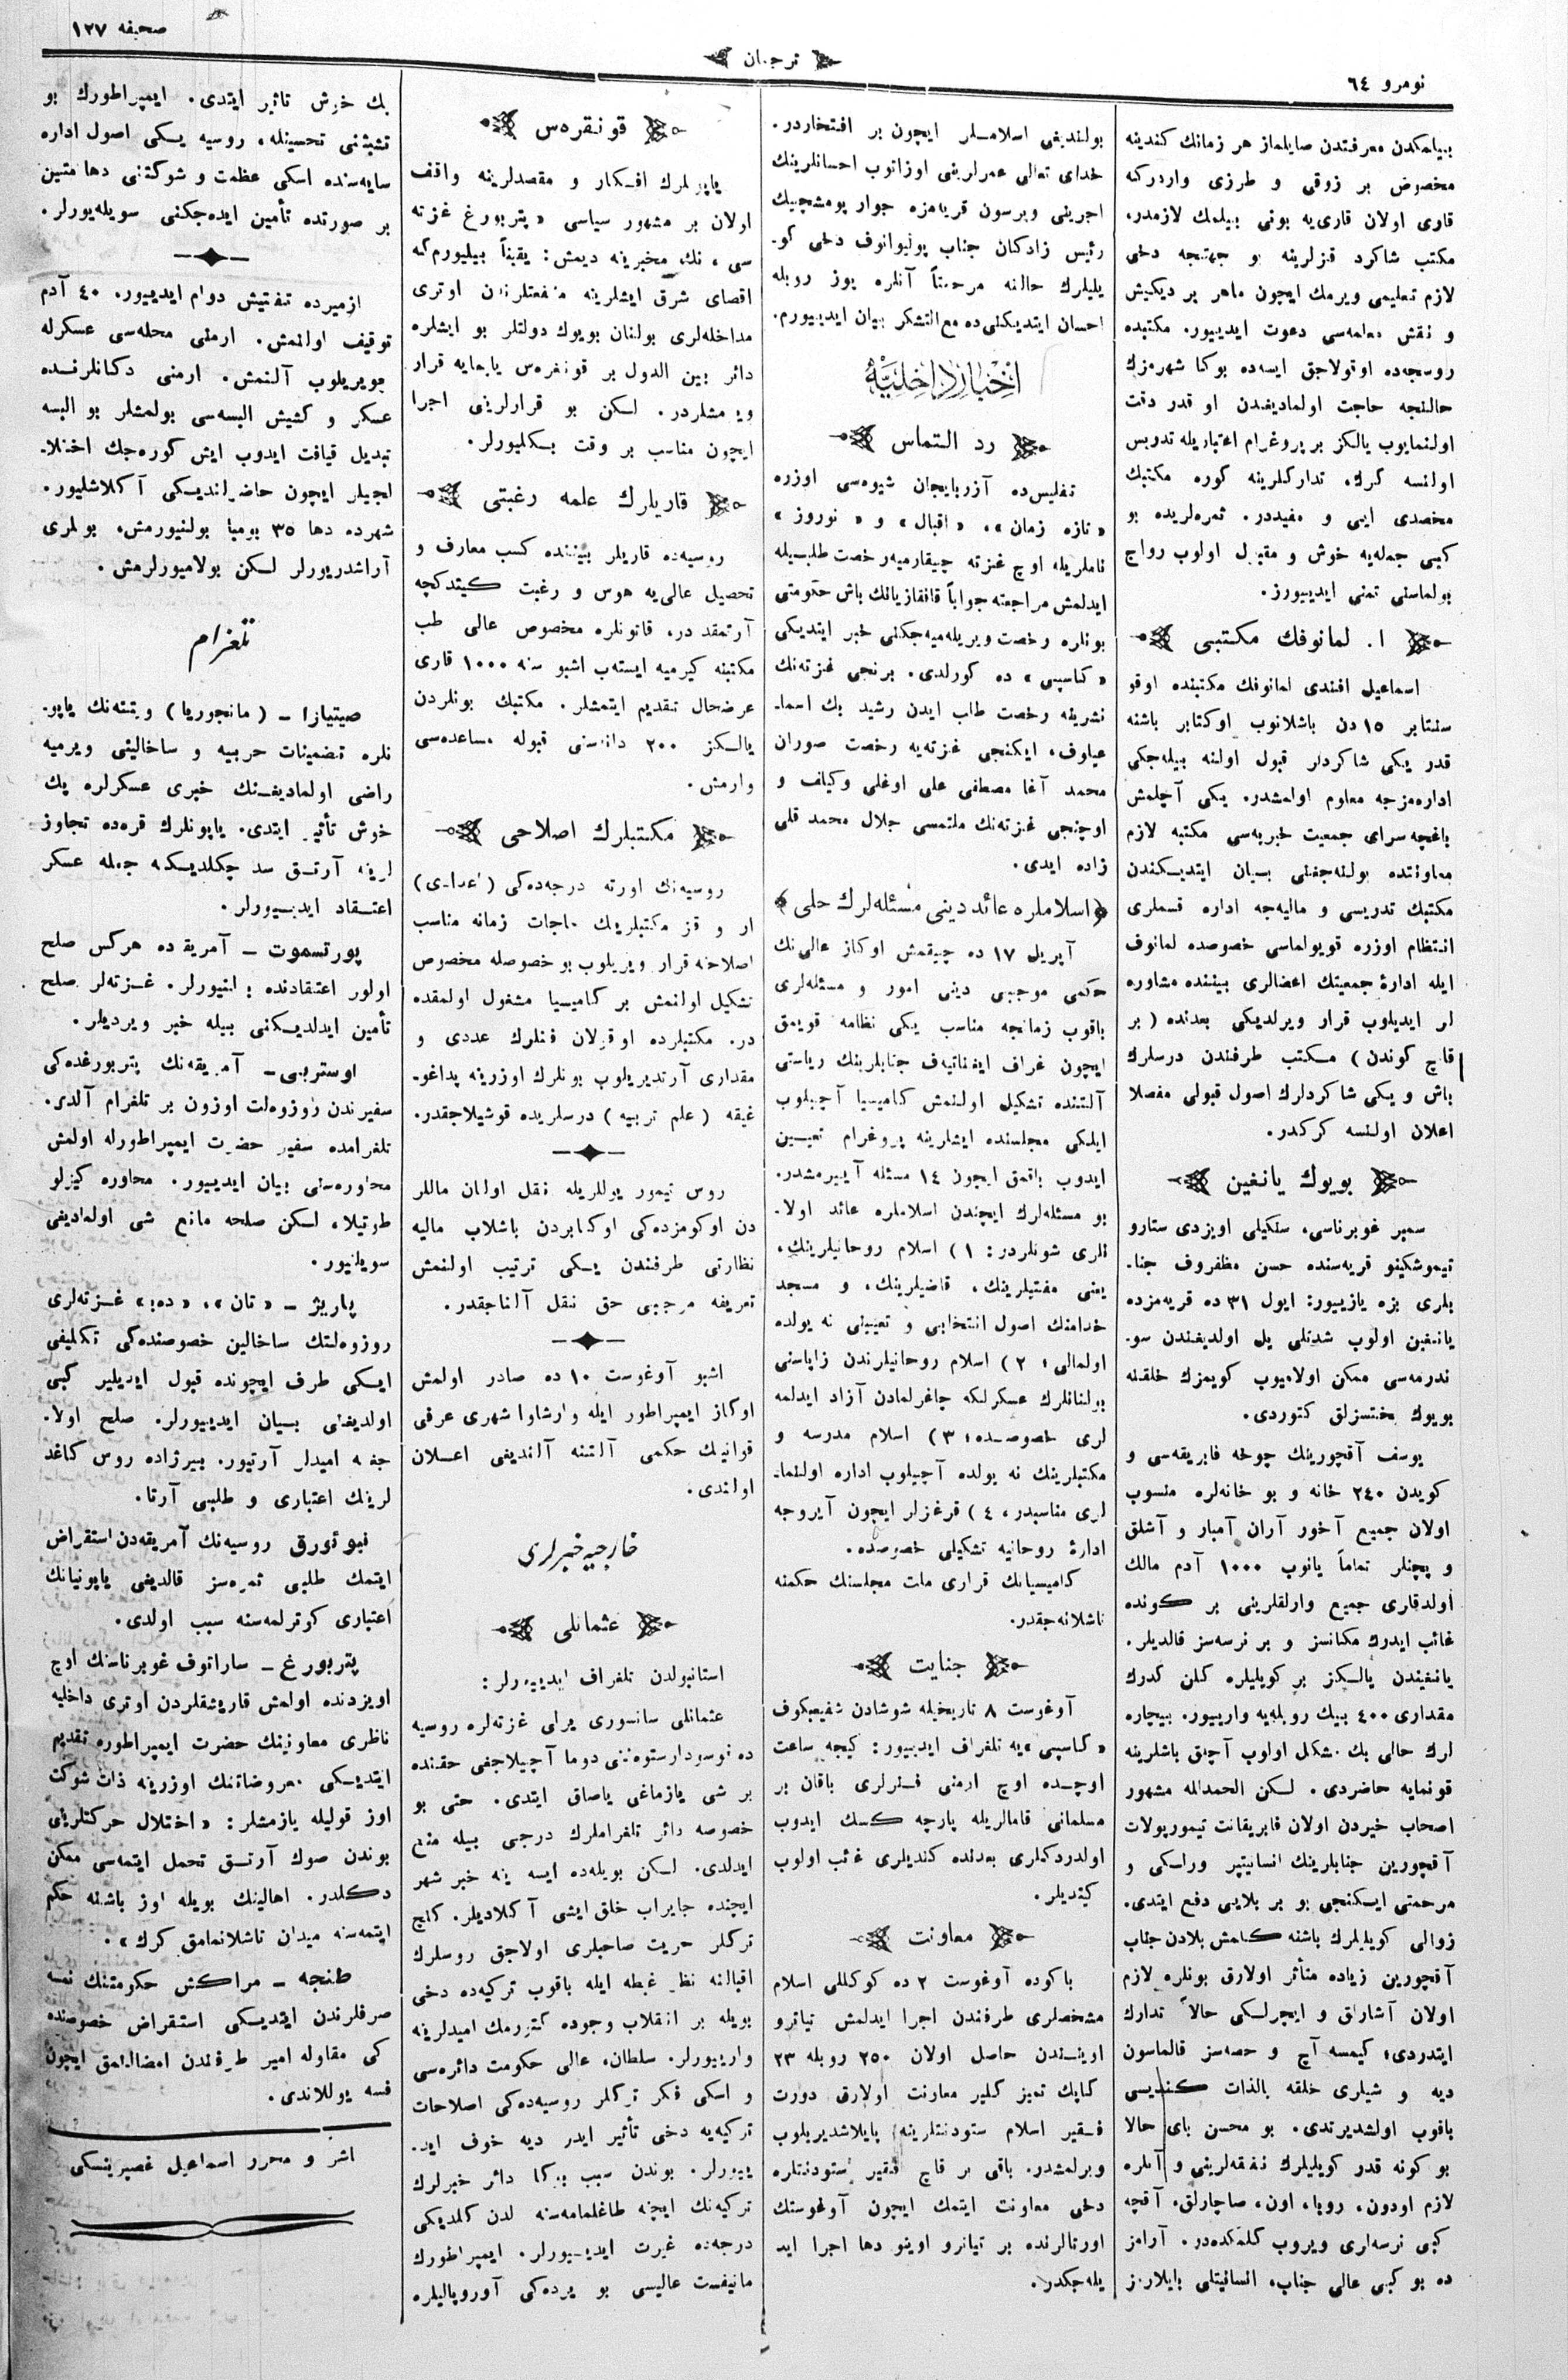 نومرو ٦٤
ترجمان
صحیفه ١٢٧
بیلمكدن معرفتدن صایلماز هر زمانك كندینه
مخصوص بر زوقی و طرزی واردركه
قاری اولان قاری‌یه بونی بیلمك لازمدر،
مكتب شاكرد قزلرینه بو جهتجه دخی
لازم تعلیمی ویرمك ایچون ماهر بر دیكیش
و نقش معلمه‌سی دعوت ایدییور. مكتبده
روسجه‌ده اوقولاجق ایسه‌ده بوكا شهرمزك
حالنجه حاجت اولمادیغندن او قدر دقت
اولنمایوب یالكز بر پروغرام اعتباریله تدریس
اولنسه كرك، تداركلرینه كوره مكتبك
مخصدی ایی و مفیددر. ثمره‌لریده بو
كبی جمله‌یه خوش و مقبول اولوب رواج
بولماسنی تمنی ایدییورز.
ا. لمانوفك مكتبی
اسماعیل افندی لمانوفك مكتبنده اوقو
سنتابر ١٥ دن باشلانوب اوكتابر باشنه
قدر یكی شاكردلر قبول اولنه بیله‌جكی
اداره‌مزجه معلوم اولمشدر. یكی آچلمش
باغچه‌سرای جمعیت خیریه‌سی مكتبه لازم
معاونتده بولنه‌جغنی بیان ایتدیكندن
مكتبك تدریسی و مالیه‌جه اداره قسملری
انتظام اوزره قویولماسی خصوصده لمانوف
ایله ادارۀ جمعیتك اعضالری بیننده مشاوره
لر ایدیلوب قرار ویرلدیكی بعدنده (بر
قاچ كوندن) مكتب طرفندن درسلرك
باش و یكی شاكردلرك اصول قبولی مفصلا
اعلان اولنسه كركدر.
بویوك یانغین
سمبر غوبرناسی، سنكیلی اویزدی ستارو
تیموشكینو قریه‌سنده حسن مظفروف جنا-
بلری بزه یازییور: ایول ٣١ ده قریه‌مزده
یانغین اولوب شدتلی یل اولدیغندن سو-
ندرمه‌سی ممكن اولامیوب كویمزك خلقنه
بویوك بختسزلق كتوردی.
یوسف آقچورینك چوخه فابریقه‌سی و
كویدن ٢٤٠ خانه و بو خانه‌لره منسوب
اولان جمیع آخور آران آمبار و آشلق
و پچنلر تماماً یانوب ١٠٠٠ آدم مالك
اولدقلری جمیع وارلقلرینی بر كونده
غائب ایدرك مكانسز و بر نرسه‌سز قالدیلر.
یانغیندن یالكز بر كویلیلره كلن كدرك
مقداری ٤٠٠ بیك روبله‌یه وارییور. بیچاره
لرك حالی بك مشكل اولوب آچلق باشلرینه
قونمایه حاضردی. لكن الحمدالله مشهور
اصحاب خیردن اولان فابریقانت تیموربولات
آقچورین جنابلرینك انسانیتپر وراسكی و
مرحمتی ایكنجی بو بر بلایی دفع ایتدی.
زوالی كویلیلرك باشنه كلمش بلادن جناب
آقچورین زیاده متأثر اولارق بونلره لازم
اولان آشارلق و ایچرلكی حالاً تدارك
ایتدردی؛ كیمسه آچ و حصه‌سز قالماسون
دیه و شیلری خلقه بالذات كندیسی
باقوب اولشدیرتدی. بو محسن بای حالا
بو كونه قدر كویلیلرك نفقه‌لرینی و آنلره
لازم اودون، روپا، اون، صاچارلق، آقچه
كبی نرسه‌لری ویروب كلمكده‌در. آرامز
ده بو كبی عالی جناب، انسانیتلی بایلارمز
بولندیغی اسلاملر ایچون بر افتخاردر.
خدای تعالی عمرلرینی اوزاتوب احسانلرینك
اجرینی ویرسون قریه‌مزه جوار پومشچیك
رئیس زادكان جناب پولیوانوف دخی كو-
یلیلرك حالنه مرحمتاً آنلره یوز روبله
احسان ایتدیكنی‌ده مع التشكر بیان ایدییورم.
اخبار داخلیه
رد التماس
تفلیس‌ده آزربایجان شیوه‌سی اوزره
«تازه زمان»، «اقبال» و «نوروز»
ناملریله اوچ غزته چیقارمیه رخصت طلبیله
ایدلمش مراجعته جواباً قافقازیانك باش حكومتی
بونلره رخصت ویریله‌میه‌جكنی خبر ایتدیكی
«كاسپی» ده كورلدی. برنجی غزته‌نك
نشرینه رخصت طلب ایدن رشید بك اسما-
عیلوف، ایكنجی غزته‌یه رخصت صوران
محمد آغا مصطفی علی اوغلی وكیلف و
اوچنجی غزته‌نك ملتمسی جلال محمد قلی
زاده ایدی.
﴿اسلاملره عائد دینی مسئله‌لرك حلی﴾
آپریل ١٧ ده چیقمش اوكاز عالی‌نك
حكمی موجبی دینی امور و مسئله‌لری
باقوب زمانجه مناسب یكی نظامه قویمق
ایچون غراف ایغناتیه‌ف جنابلرینك ریاستی
آلتنده تشكیل اولنمش كامیسیا آچیلوب
ایلكی مجلسنده ایشلرینه پروغرام تعیین
ایدوب باقمق ایچون ١٤ مسئله آییرمشدر.
بو مسئله‌لرك ایچندن اسلاملره عائد اولا-
نلری شونلردر: ١) اسلام روحانیلرینك،
یعنی مفتیلرینك، قاضیلرینك، و مسجد
خدامنك اصول انتخابی و تعیینی نه یولده
اولمالی؛ ٢) اسلام روحانیلرندن زاپاسنی
بولنانلرك عسكرلكه چاغرلمادن آزاد ایدلمه
لری خصوصده؛ ٣) اسلام مدرسه و
مكتبلرینك نه یولده آچیلوب اداره اولنما-
لری مناسبدر، ٤) قرغزلر ایچون آیروجه
ادارۀ روحانیه تشكیلی خصوصده.
كامیسیانك قراری ملت مجلسنك حكمنه
تاشلانه‌جقدر.
جنایت
آوغوست ٨ تاریخیله شوشادن شفیعبكوف
«كاسپی»یه تلغراف ایدییور: كیجه ساعت
اوچده اوچ ارمنی فنرلری باقان بر
مسلمانی قامالریله پارچه كسك ایدوب
اولدردكلری بعدنده كندیلری غائب اولوب
كیتدیلر.
معاونت
باكوده آوغوست ٢ ده كوكللی اسلام
مشخصلری طرفندن اجرا ایدلمش تیاترو
اویننندن حاصل اولان ٢٥٠ روبله ٢٣
كاپك تمیز كلیر معاونت اولارق دورت
فقیر اسلام ستودنتلرینه پایلاشدیریلوب
ویرلمشدر. باقی بر قاچ فقیر ستودنتلره
دخی معاونت ایتمك ایچون آوغوستك
اورتالرنده بر تیاترو اوینو دها اجرا اید
یله‌جكدر.
قونقره‌س
یاپونلرك افكار و مقصدلرینه واقف
اولان بر مشهور سیاسی «پتربورغ غزته
سی» نك مخبرینه دیمش: یقیناً بیلیورم‌كه
اقصای شرق ایشلرینه منفعتلرندن اوتری
مداخله‌لری بولنان بویوك دولتلر بو ایشلره
دائر بین الدول بر قونغره‌س یاپمایه قرار
ویرمشلردر. لكن بو قرارلرینی اجرا
ایچون مناسب بر وقت بكلیورلر.
قاریلرك علمه رغبتی
روسیه‌ده قاریلر بیننده كسب معارف و
تحصیل عالی‌یه هوس و رغبت كیتدكچه
آرتمقده در، قاتونلره مخصوص عالی طب
مكتبنه كیرمیه ایسته‌ب اشبو سنه ١٠٠٠ قاری
عرضحال تقدیم ایتمشلر. مكتبك بونلردن
یالكز ٢٠٠ دانه‌سنی قبوله مساعده‌سی
وارمش.
مكتبلرك اصلاحی
روسیه‌نك اورته درجه‌ده‌كی (اعدادی)
ار و قز مكتبلرینك حاجات زمانه مناسب
اصلاحنه قرار ویریلوب بو خصوصله مخصوص
تشكیل اولنمش بر كامیسیا مشغول اولمقده
در. مكتبلرده اوقولان فنلرك عددی و
مقداری آرتدیریلوب بونلرك اوزرینه پداغو-
غیقه (علم تربیه) درسلریده قوشیلاجقدر.
روس تیمور یوللریله نقل اولنان ماللر
دن اوكومزده‌كی اوكتابردن باشلاب مالیه
نظارتی طرفندن یكی ترتیب اولنمش
تعریفه موجبی حق نقل آلناجقدر.
اشبو آوغوست ١٠ ده صادر اولمش
اوكاز ایمپراطور ایله وارشاوا شهری عرفی
قوانینك حكمی آلتنه آلندیغی اعلان
اولندی.
خارجیه خبرلری
عثمانلی
استانبولدن تلغراف ایدییورلر:
عثمانلی سانسوری یرلی غزته‌لره روسیه
ده غوسودارستوه‌ننی دوما آچیلاجغی حقنده
بر شی یازماغی یاصاق ایتدی. حتی بو
خصوصه دائر تلغراملرك درجی بیله منع
ایدلدی. لكن بویله‌ده ایسه ینه خبر شهر
ایچنده جایراب خلق ایشی آكلادیلر. كنج
تركلر حریت صاحبلری اولاجق روسلرك
اقبالنه نظر غبطه ایله باقوب تركیه‌ده دخی
بویله بر انقلاب وجوده كتیرمك امیدلرینه
وارییورلر. سلطان، عالی حكومت دائره‌سی
و اسكی فكر تركلر روسیه‌ده‌كی اصلاحات
تركیه‌یه دخی تأثیر ایدر دیه خوف اید-
ییورلر. بوندن سبب بوكا دائر خبرلرك
تركیه‌نك ایچنه طاغلمامه‌سنه الدن كلدیكی
درجه‌ده غیرت ایدییورلر. ایمپراطورك
مانیفست عالیسی بو یرده‌كی آوروپالیلره
بك خوش تاثیر ایتدی. ایمپراطورك بو
تشبثنی تحسینله، روسیه یكی اصول اداره
سایه‌سنده اسكی عظمت و شوكتنی دها متین
بر صورتده تأمین ایده‌جكنی سویله‌یورلر.
ازمیرده تفتیش دوام ایدییور. ٤٠ آدم
توقیف اولنمش. ارمنی محله‌سی عسكرله
چویریلوب آلنمش. ارمنی دكانلرنده
عسكر و كشیش البسه‌سی بولمشلر بو البسه
تبدیل قیافت ایدوب ایش كوره‌جك اختلا-
لجیلر ایچون حاضرلندیكی آكلاشلیور.
شهرده دها ٣٥ بومبا بولنیورمش، بونلری
آراشدریورلر لكن بولامیورلرمش.
تلغرام
صیتیازا – (مانجوریا) ویتته‌نك یاپو-
نلره تضمینات حربیه و ساخالینی ویرمیه
راضی اولمادیغنك خبری عسكرلره پك
خوش تأثیر ایتدی. یاپونلرك قره‌ده تجاوز
لرینه آرتق سد چكلدیكنه جمله عسكر
اعتقاد ایدییورلر.
پورتسموت – آمریقه ده هركس صلح
اولور اعتقادنده بولنیورلر. غزته‌لر صلح
تأمین ایدلدیكنی بیله خبر ویردیلر.
اوستربی – آمریقه‌نك پتربورغده‌كی
سفیرندن روزوه‌لت اوزون بر تلغرام آلدی.
تلغرامده سفیر حضرت ایمپراطورله اولمش
محاوره‌سنی بیان ایدییور. محاوره كیزلو
طوتیلا، لكن صلحه مانع شی اولمادیغی
سویلنیور.
پاریژ – «تان»، «ده‌با» غزته‌لری
روزوه‌لتك ساخالین خصوصنده‌كی تكلیفی
ایكی طرف ایچونده قبول ایدیلیر كبی
اولدیغنی بیان ایدییورلر. صلح اولا-
جغنه امیدلر آرتیور. بیرژاده روس كاغد
لرینك اعتباری و طلبی آرتا.
نیویورق روسیه‌نك آمریقه‌دن استقراض
ایتمك طلبی ثمره‌سز قالدیغی یاپونیانك
اعتباری كوترلمه‌سنه سبب اولدی.
پتربورغ – ساراتوف غوبرناسنك اوچ
اویزدنده اولمش قاریشقلردن اوتری داخلیه
ناظری معاونینك حضرت ایمپراطوره تقدیم
ایتدیكی معروضاتنك اوزرینه ذات شوكت
اوز قولیله یازمشلر: «اختلال حركتلرینی
بوندن صوك آرتق تحمل ایتمه‌سی ممكن
دكلدر. اهالینك بویله اوز باشنه حكم
ایتمه‌سنه میدان تاشلانمامق كرك».
طنجه – مراكش حكومتنك نمسه
صرفلرندن ایتدیكی استقراض خصوصنده
كی مقاوله امیر طرفندن امضالنمق ایچون
فسه یوللاندی.
ناشر و محرر اسماعیل غصپرینسكی